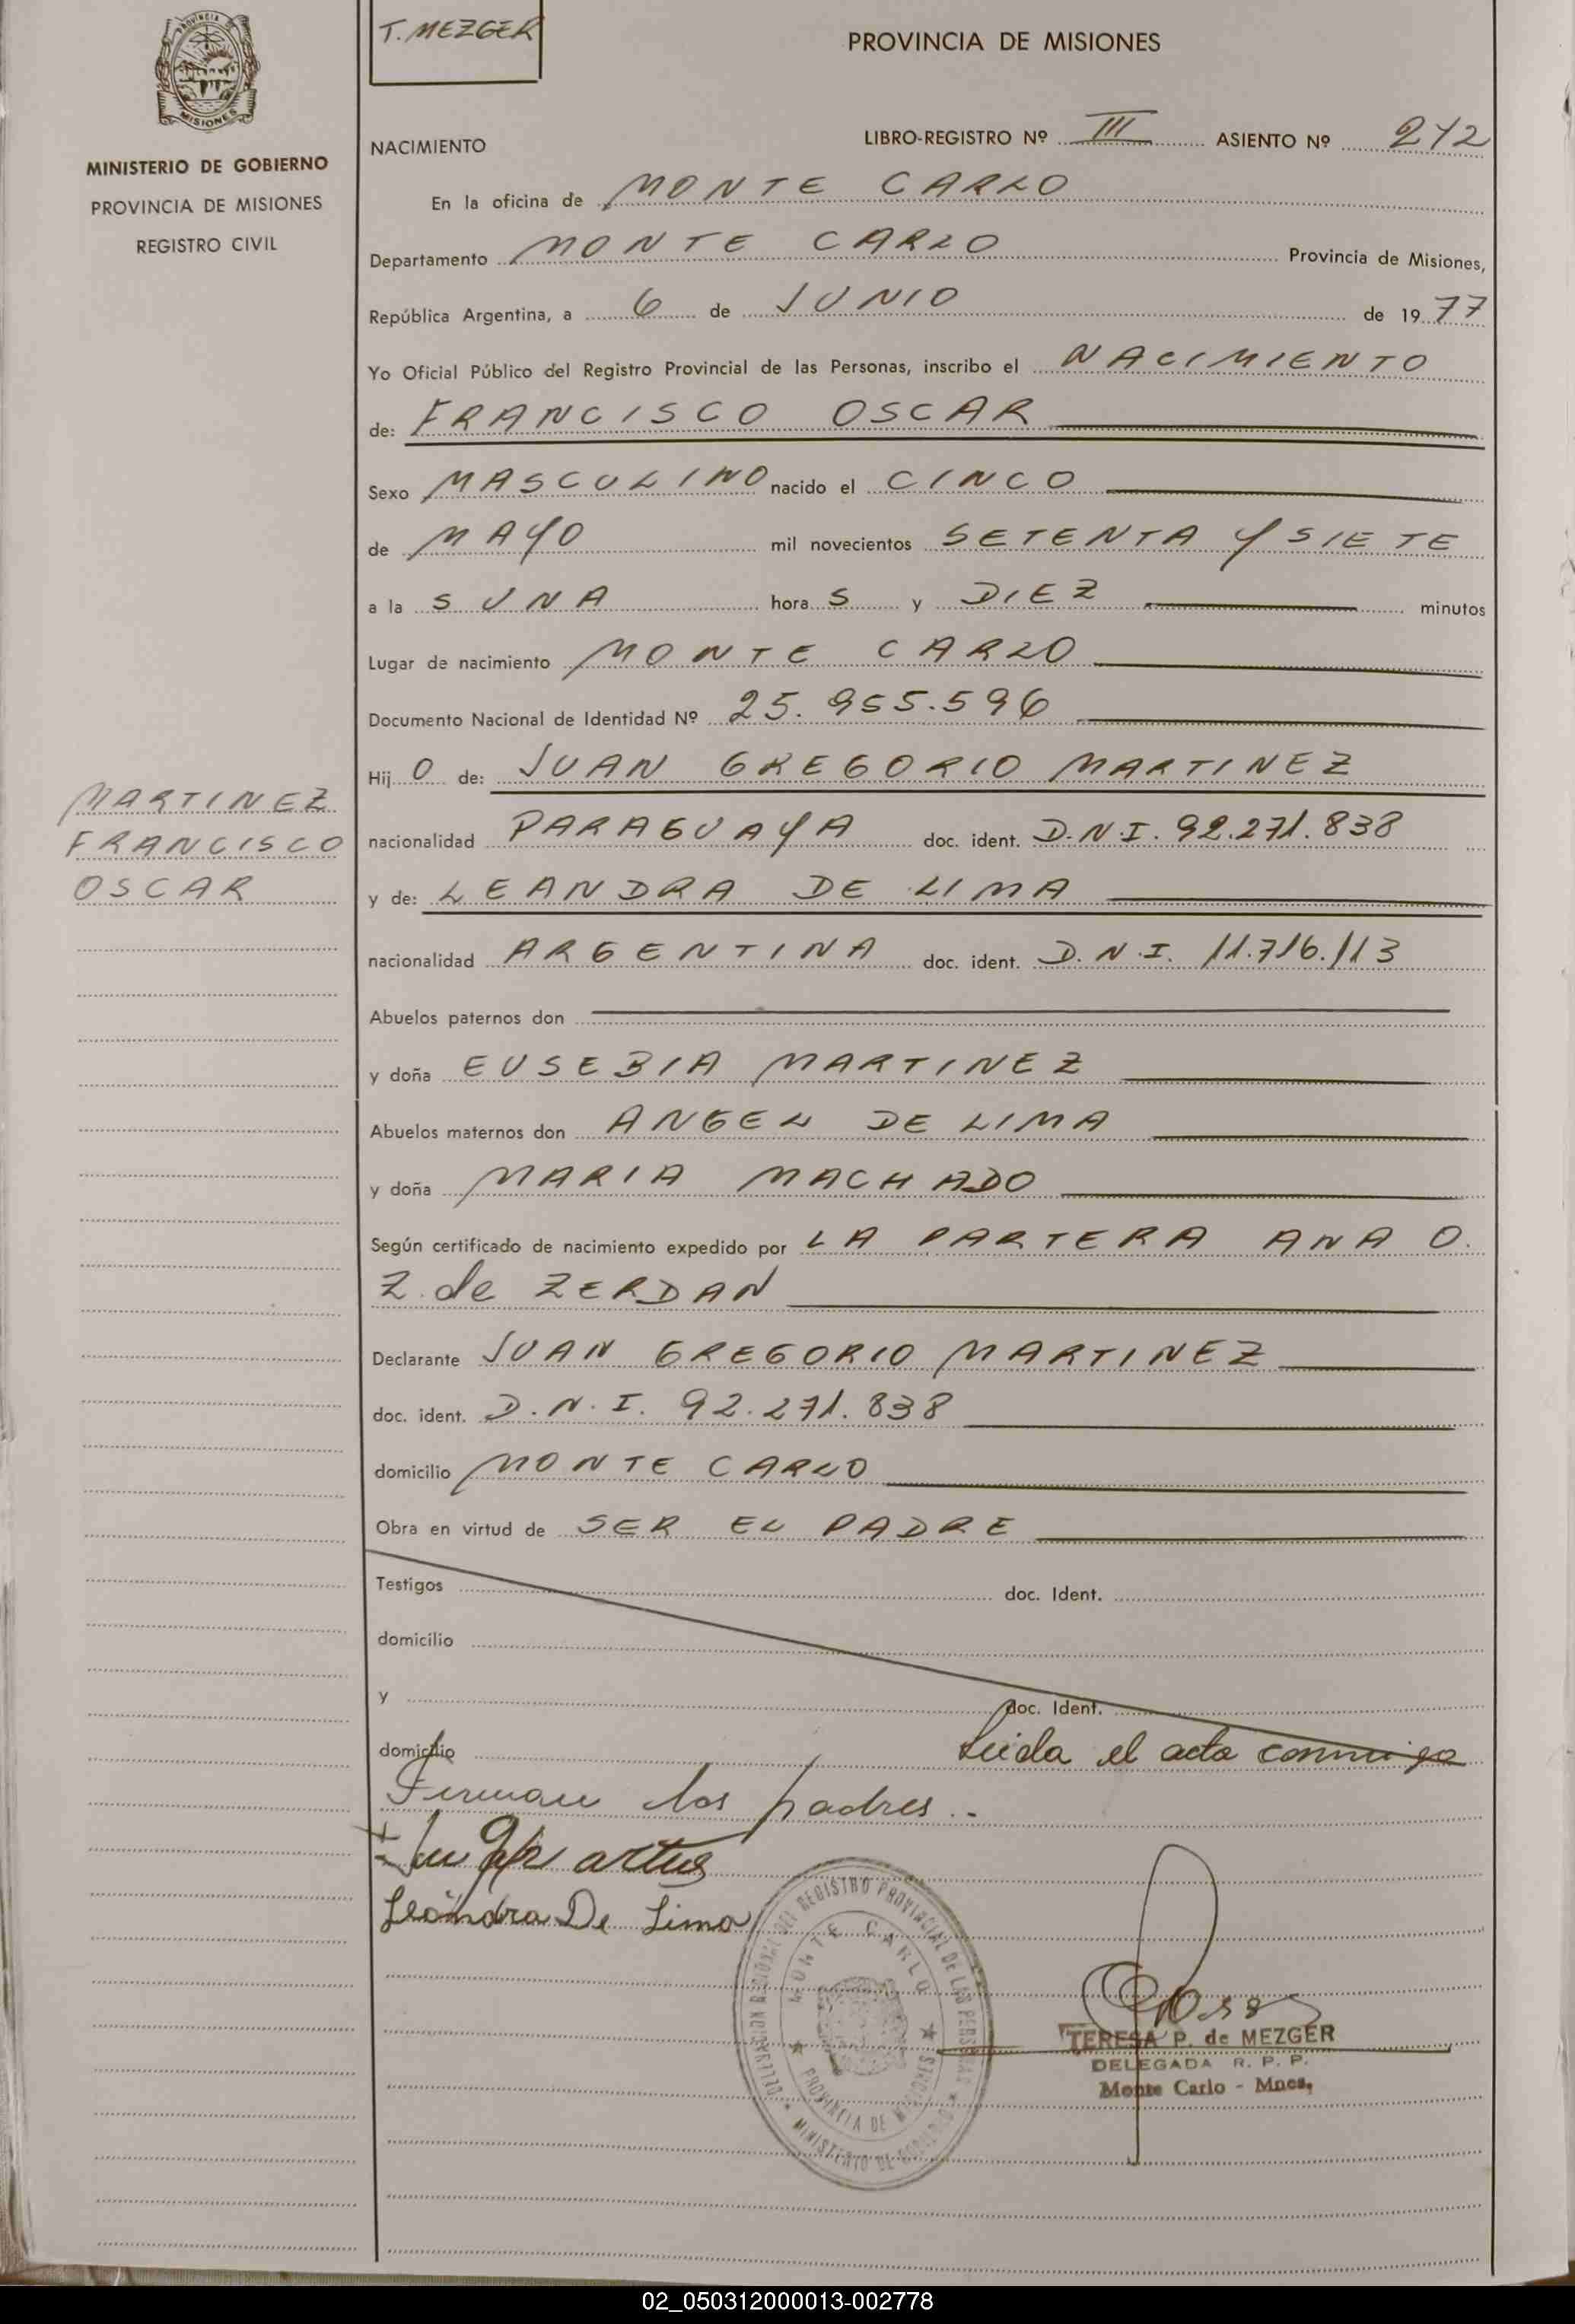 T. MEZGER
PROVINCIA DE MISIONES
MISIONES
MINISTERIO DE GOBIERNO
PROVINCIA DE MISIONES
REGISTRO CIVIL
NACIMIENTO
LIBRO-REGISTRO Nº III ASIENTO Nº 272
En la oficina de MONTE CARLO
Departamento MONTE CARLO Provincia de Misiones,
República Argentina, a 6 de JUNIO de 1977
Yo Oficial Público del Registro Provincial de las Personas, inscribo el NACIMIENTO
de: FRANCISCO OSCAR
Sexo MASCULINO nacido el CINCO
de MAYO mil novecientos SETENTA Y SIETE
a la S UNA hora S y DIEZ minutos
Lugar de nacimiento MONTE CARLO
Documento Nacional de Identidad Nº 25.955.596
Hij O de: JUAN GREGORIO MARTINEZ
MARTINEZ
FRANCISCO
OSCAR
nacionalidad PARAGUAYA doc. ident. D.N.I. 92.271.838
y de: LEANDRA DE LIMA
nacionalidad ARGENTINA doc. ident. D.N.I. 11.716.113
Abuelos paternos don
y doña EUSEBIA MARTINEZ
Abuelos maternos don ANGEL DE LIMA
y doña MARIA MACHADO
Según certificado de nacimiento expedido por LA PARTERA ANA O.
Z. de ZERDAN
Declarante JUAN GREGORIO MARTINEZ
doc. ident. D.N.I. 92.271.838
domicilio MONTE CARLO
Obra en virtud de SER EL PADRE
Testigos doc. Ident.
domicilio
y doc. Ident.
domicilio Leida el acta conmigo
Firman los padres.-
Leandra De Lima
DELEGACION REGIONAL DEL REGISTRO PROVINCIAL DE LAS PERSONAS
MONTE CARLO
PROVINCIA DE MISIONES
MINISTERIO DE GOBIERNO
TERESA P. de MEZGER
DELEGADA R. P. P.
Monte Carlo - Mnes.
02_050312000013-002778